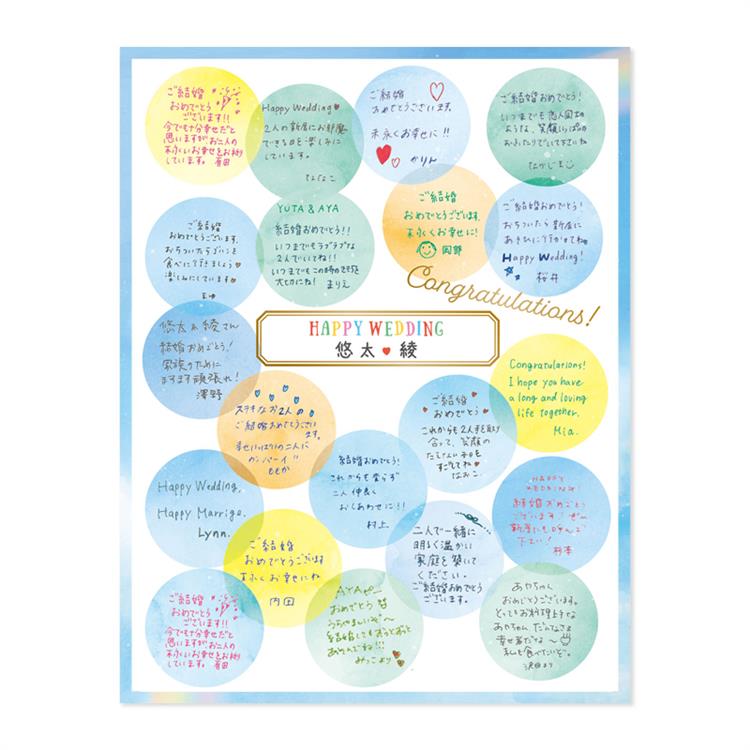 ご結婚
おめでとう
ございます!!
今でも十分幸せだと
思いますが お二人の
末永いお幸せをお祈り
しています。
Happy Wedding♥
2人の新居にお邪魔
できる日を楽しみに
しています。
ご結婚
おめでとうございます。
末永くお幸せに!!
かりん
ご結婚おめでとう!
いつまでも恋人同士の
ような、笑顔いっぱいの
おふたりでいて下さいね
なかじま
ご結婚
おめでとうございます。
おちついたらごはんを
食べに行きましょう
楽しみにしています
YUTA & AYA
結婚おめでとう!!
いつまでもラブラブな
2人でいてね!!
いつまでもこの時の気持ち
大切にね!
まりえ
ご結婚
おめでとうございます。
末永くお幸せに!
岡野
ご結婚おめでとう!
おちついたら新居に
あそびに行かせてね
Happy Wedding!
桜井
Congratulations!
HAPPY WEDDING
悠太♥綾
悠太&綾さん
結婚おめでとう!
家族のために
ますます頑張れ!
澤野
Congratulations!
I hope you have
a long and loving
life together.
Mia.
ステキなお2人の
ご結婚おめでとうござい
ます。
幸せいっぱいの二人に
カンパーイ
ももか
ご結婚
おめでとう
これからも2人手を取り
合って、笑顔の
たえない日々を
すごしてね
なおこ
結婚おめでとう!
これからも変らず
二人仲良く
おしあわせに!!
村上
Happy Wedding.
Happy Marrige.
Lynn.
HAPPY
WEDDING!
結婚おめでとう
ございます!
新居にも呼んで
下さい!
杉本
ご結婚
おめでとうございます
末永くお幸せにね
内田
二人で一緒に
明るく温かい
家庭を築いて
ください。
ご結婚おめでとう
ございます。
ご結婚
おめでとう
ございます!!
今でも十分幸せだと
思いますが お二人の
末永いお幸せをお祈り
しています。
おめでとう
うらやましいぞ〜
結婚してもずっとずっと
あそんでね!!!
みっこより
あやちゃん
おめでとうございます。
とってもお料理上手な
あやちゃん。だんなさまは
幸せ者だな〜
私も食べたいぞ。